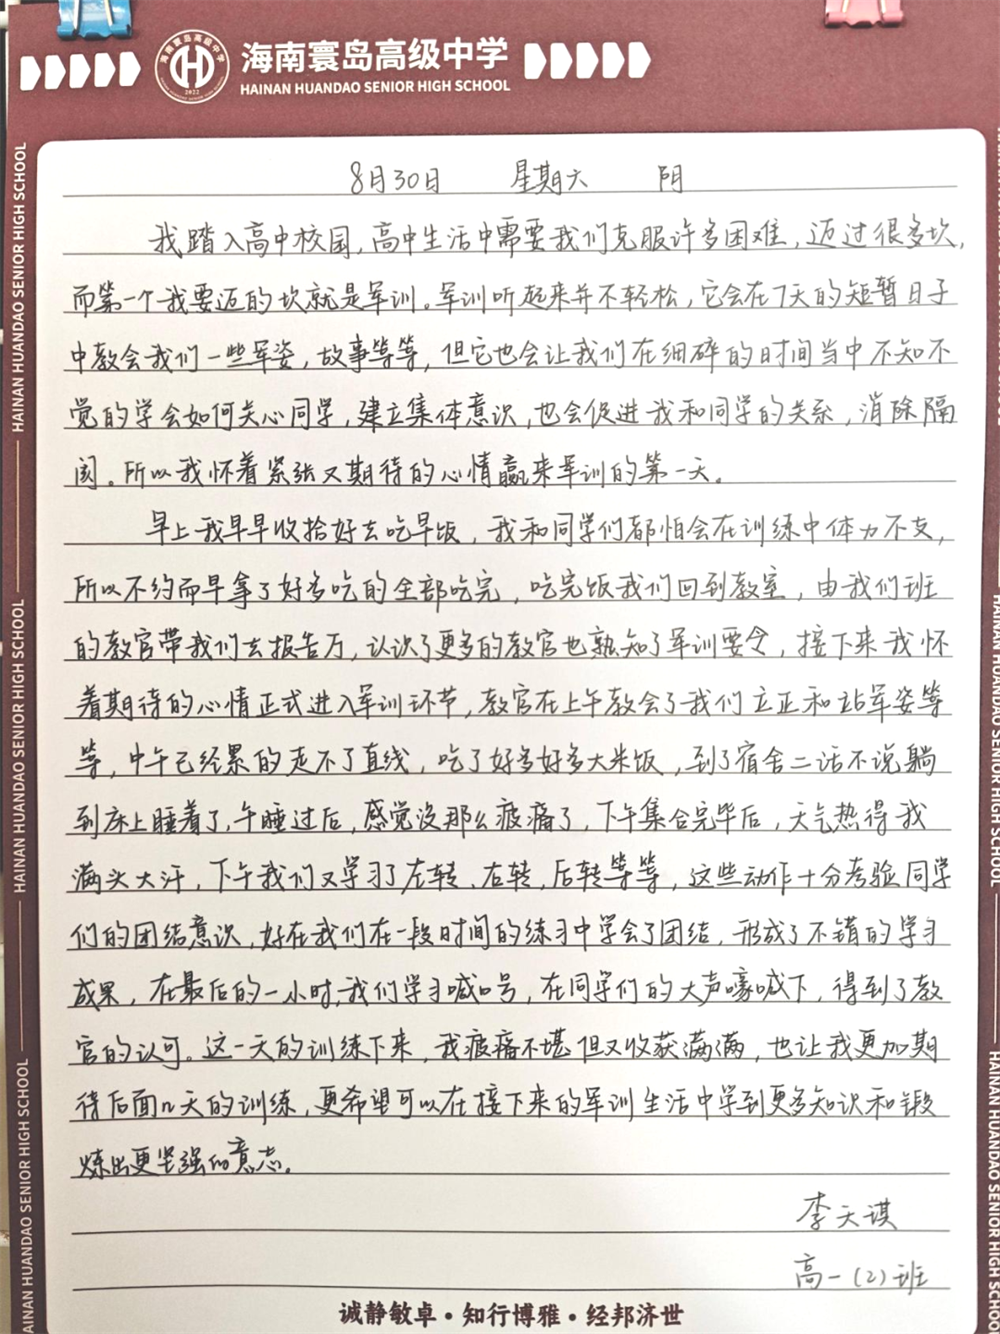 海南寰岛高级中学
HAINAN HUANDAO SENIOR HIGH SCHOOL
8月30日 星期六 阴
我踏入高中校园，高中生活中需要我们克服许多困难，迈过很多坎，
而第一个我要迈的坎就是军训。军训听起来并不轻松，它会在7天的短暂日子
中教会我们一些军姿，故事等等，但它也会让我们在细碎的时间当中不知不
觉的学会如何关心同学，建立集体意识，也会促进我和同学的关系，消除隔
阂。所以我怀着紧张又期待的心情赢来军训的第一天。
早上我早早收拾好去吃早饭，我和同学们都怕会在训练中体力不支，
所以不约而早拿了好多吃的全部吃完，吃完饭我们回到教室，由我们班
的教官带我们去报告厅，认识了更多的教官也熟知了军训要令，接下来我怀
着期待的心情正式进入军训环节，教官在上午教会了我们立正和站军姿等
等，中午已经累的走不了直线，吃了好多好多大米饭，到了宿舍二话不说躺
到床上睡着了，午睡过后，感觉没那么疲痛了，下午集合完毕后，天气热得我
满头大汗，下午我们又学习了左转，右转，后转等等，这些动作十分考验同学
们的团结意识，好在我们在一段时间的练习中学会了团结，形成了不错的学习
成果，在最后的一小时，我们学习喊口号，在同学们的大声嚎喊下，得到了教
官的认可。这一天的训练下来，我疲痛不堪但又收获满满，也让我更加期
待后面几天的训练，更希望可以在接下来的军训生活中学到更多知识和锻
炼出更坚强的意志。
李天琪
高一（2）班
诚静敏卓·知行博雅·经邦济世
HAINAN HUANDAO SENIOR HIGH SCHOOL
HAINAN HUANDAO SENIOR HIGH SCHOOL
HAINAN HUANDAO SENIOR HIGH SCHOOL